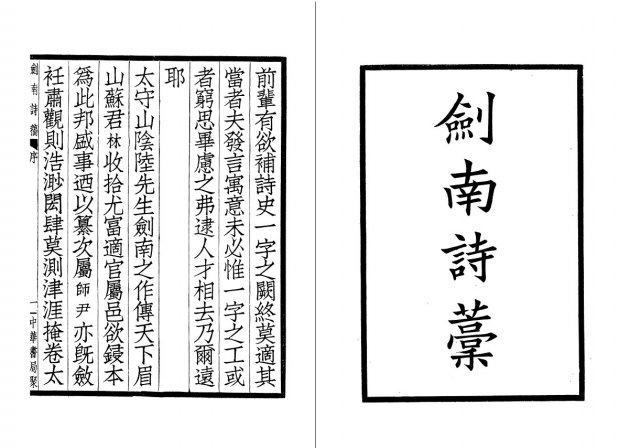 劍南詩藁
前輩有欲補詩史一字之闕終莫適其
當者夫發言寓意未必惟一字之工或
者窮思畢慮之弗逮人才相去乃爾遠
耶
太守山陰陸先生劍南之作傳天下眉
山蘇君林收拾尤富適官屬邑欲鋟本
爲此邦盛事迺以纂次屬師尹亦旣斂
衽肅觀則浩渺閎肆莫測津涯掩卷太
劍南詩藁 序
一 中華書局聚